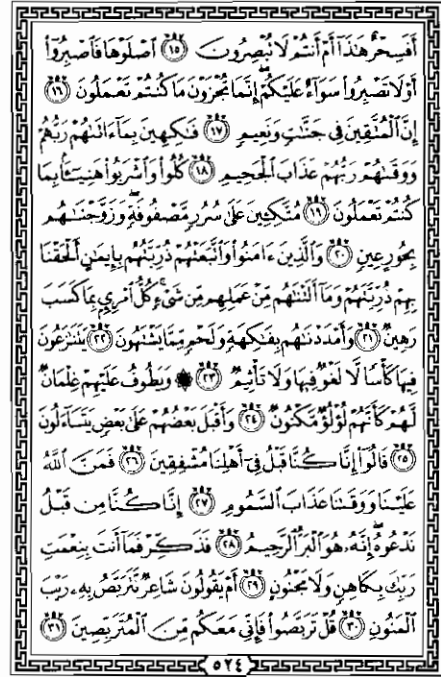 أَفَسِحْرٌ هَٰذَآ أَمْ أَنتُمْ لَا تُبْصِرُونَ ﴿١٥﴾ ٱصْلَوْهَا فَٱصْبِرُوٓا۟
أَوْ لَا تَصْبِرُوا۟ سَوَآءٌ عَلَيْكُمْ ۖ إِنَّمَا تُجْزَوْنَ مَا كُنتُمْ تَعْمَلُونَ ﴿١٦﴾
إِنَّ ٱلْمُتَّقِينَ فِى جَنَّٰتٍ وَنَعِيمٍ ﴿١٧﴾ فَٰكِهِينَ بِمَآ ءَاتَىٰهُمْ رَبُّهُمْ
وَوَقَىٰهُمْ رَبُّهُمْ عَذَابَ ٱلْجَحِيمِ ﴿١٨﴾ كُلُوا۟ وَٱشْرَبُوا۟ هَنِيٓـًٔۢا بِمَا
كُنتُمْ تَعْمَلُونَ ﴿١٩﴾ مُتَّكِـِٔينَ عَلَىٰ سُرُرٍ مَّصْفُوفَةٍ ۖ وَزَوَّجْنَٰهُم
بِحُورٍ عِينٍ ﴿٢٠﴾ وَٱلَّذِينَ ءَامَنُوا۟ وَٱتَّبَعَتْهُمْ ذُرِّيَّتُهُم بِإِيمَٰنٍ أَلْحَقْنَا
بِهِمْ ذُرِّيَّتَهُمْ وَمَآ أَلَتْنَٰهُم مِّنْ عَمَلِهِم مِّن شَىْءٍ ۚ كُلُّ ٱمْرِئٍۭ بِمَا كَسَبَ
رَهِينٌ ﴿٢١﴾ وَأَمْدَدْنَٰهُم بِفَٰكِهَةٍ وَلَحْمٍ مِّمَّا يَشْتَهُونَ ﴿٢٢﴾ يَتَنَٰزَعُونَ
فِيهَا كَأْسًا لَّا لَغْوٌ فِيهَا وَلَا تَأْثِيمٌ ﴿٢٣﴾ ۞ وَيَطُوفُ عَلَيْهِمْ غِلْمَانٌ
لَّهُمْ كَأَنَّهُمْ لُؤْلُؤٌ مَّكْنُونٌ ﴿٢٤﴾ وَأَقْبَلَ بَعْضُهُمْ عَلَىٰ بَعْضٍ يَتَسَآءَلُونَ
﴿٢٥﴾ قَالُوٓا۟ إِنَّا كُنَّا قَبْلُ فِىٓ أَهْلِنَا مُشْفِقِينَ ﴿٢٦﴾ فَمَنَّ ٱللَّهُ
عَلَيْنَا وَوَقَىٰنَا عَذَابَ ٱلسَّمُومِ ﴿٢٧﴾ إِنَّا كُنَّا مِن قَبْلُ
نَدْعُوهُ ۖ إِنَّهُۥ هُوَ ٱلْبَرُّ ٱلرَّحِيمُ ﴿٢٨﴾ فَذَكِّرْ فَمَآ أَنتَ بِنِعْمَتِ
رَبِّكَ بِكَاهِنٍ وَلَا مَجْنُونٍ ﴿٢٩﴾ أَمْ يَقُولُونَ شَاعِرٌ نَّتَرَبَّصُ بِهِۦ رَيْبَ
ٱلْمَنُونِ ﴿٣٠﴾ قُلْ تَرَبَّصُوا۟ فَإِنِّى مَعَكُم مِّنَ ٱلْمُتَرَبِّصِينَ ﴿٣١﴾
٥٢٤